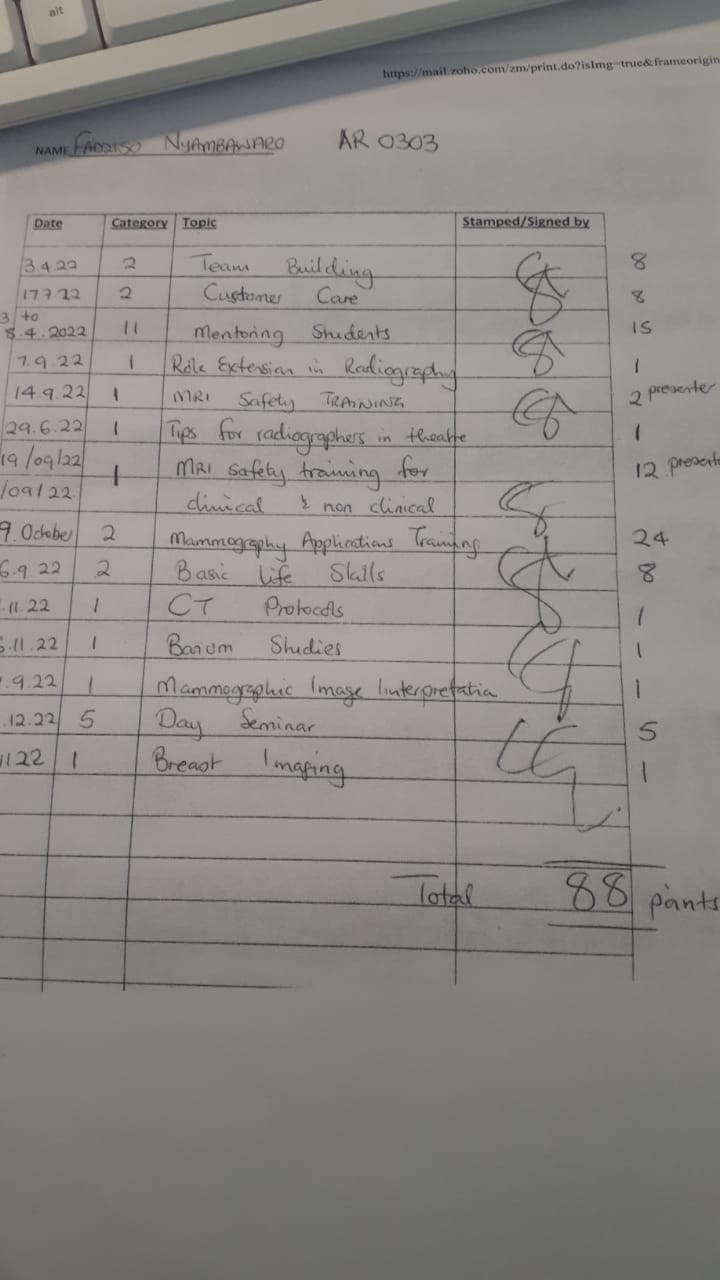 alt
https://mail.zoho.com/zm/print.do?isImg=true&frameorigin
NAME NYAMBAWARO AR 0303
Date Category Topic Stamped/Signed by
3.4.22 2 Team Building 8
17722 2 Customer Care 8
3 to
8.4.2022 11 Mentoring Students 15
7.9.22 1 Role Extension in Radiography 1
14.9.22 1 MRI Safety TRAINING 2 presenter
29.6.22 1 Tips for radiographers in theatre 1
19/09/22 1 MRI safety training for 12 presente
/09/22 clinical & non clinical
9. October 2 Mammography Applications Training 24
6.9.22 2 Basic life Skills 8
.11.22 1 CT Protocols 1
.11.22 1 Barium Studies 1
.9.22 1 Mammographic Image Iinterpretatia 1
.12.22 5 Day Seminar 5
1122 1 Breast Imaging 1
Total 88 points